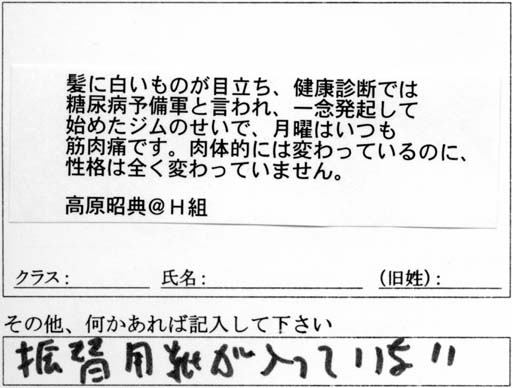 髪に白いものが目立ち、健康診断では
糖尿病予備軍と言われ、一念発起して
始めたジムのせいで、月曜はいつも
筋肉痛です。肉体的には変わっているのに、
性格は全く変わっていません。
高原昭典@H組
クラス: 氏名: (旧姓):
その他、何かあれば記入して下さい
振替用紙が入っていない